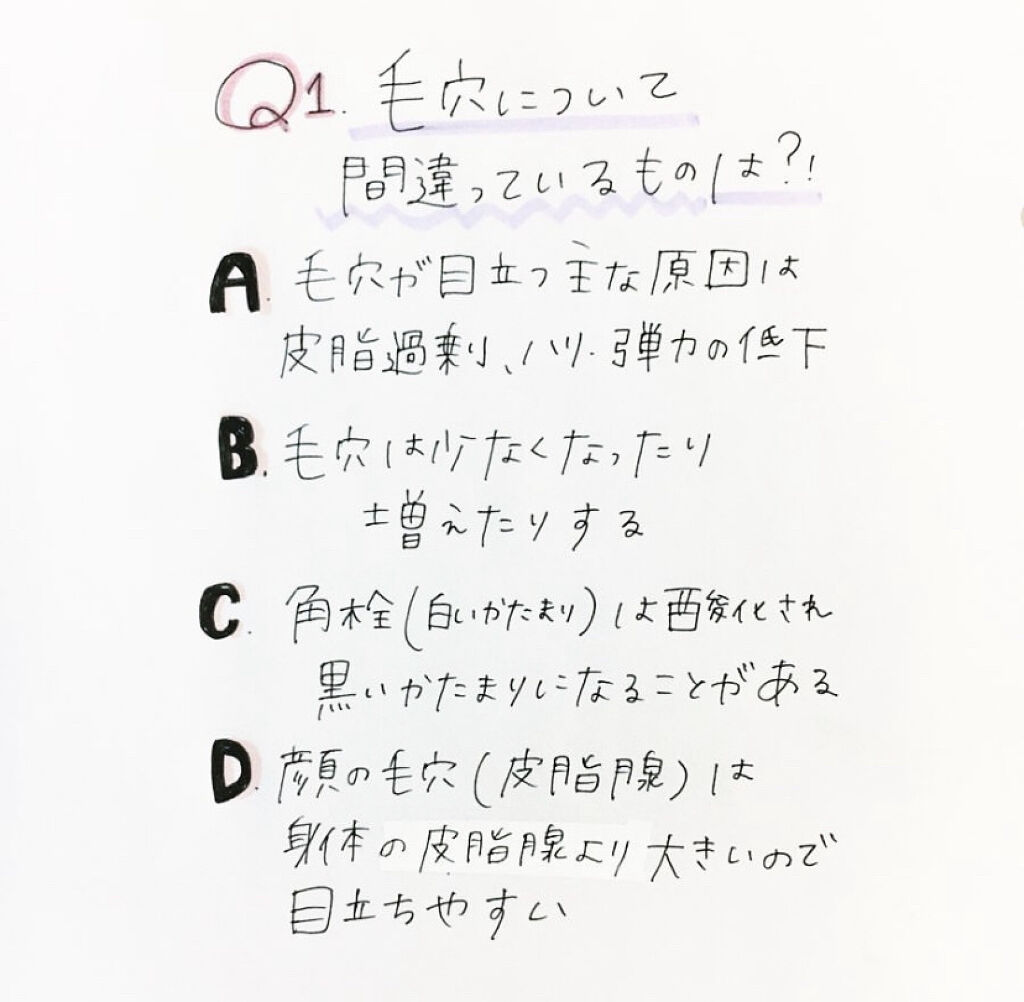 Q1. 毛穴について
間違っているものは?!
A. 毛穴が目立つ主な原因は
皮脂過剰、ハリ・弾力の低下
B. 毛穴は少なくなったり
増えたりする
C. 角栓(白いかたまり)は酸化され
黒いかたまりになることがある
D. 顔の毛穴(皮脂腺)は
身体の皮脂腺より大きいので
目立ちやすい